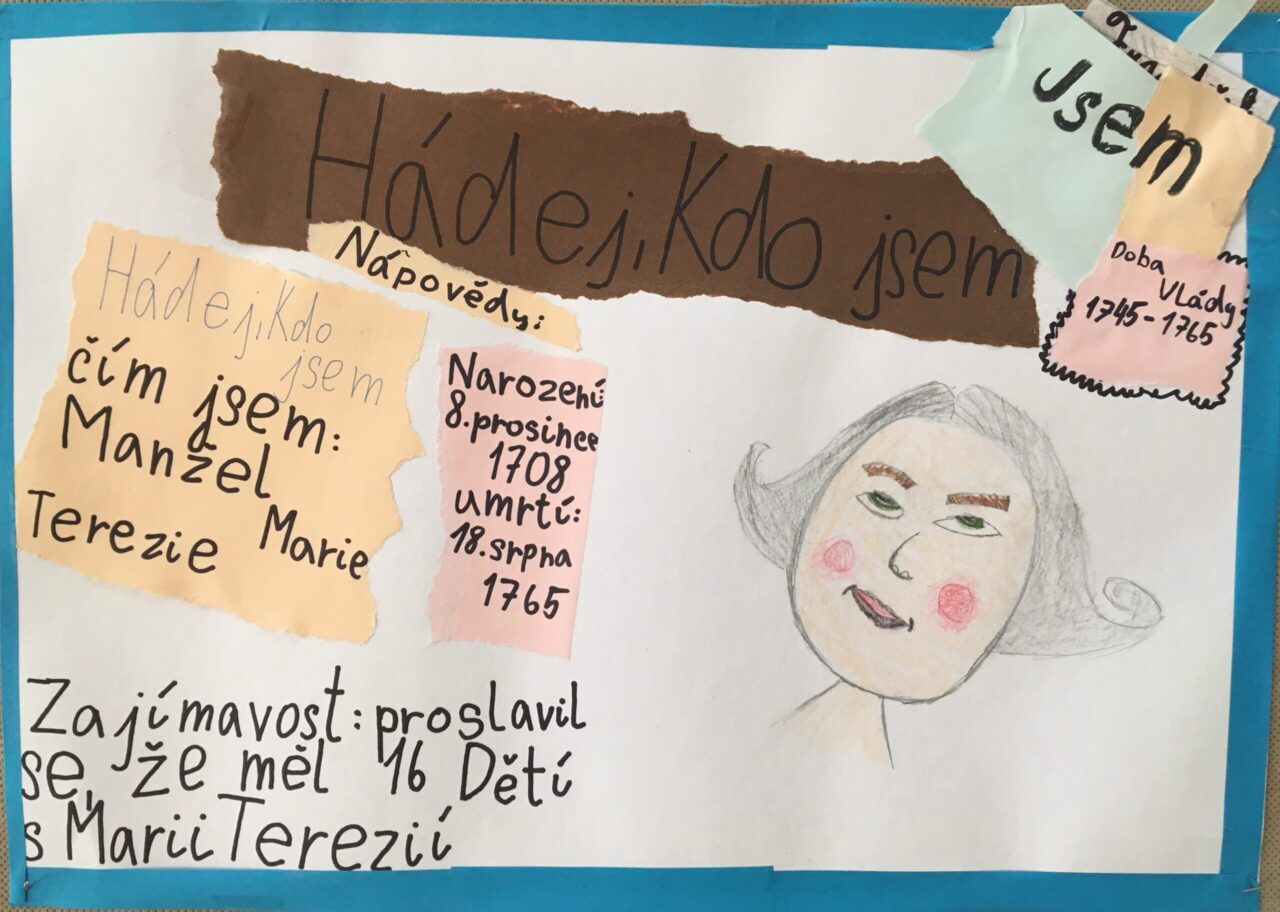 Hádej, Kdo jsem
Jsem
Doba
Vlády
1745-1765
Nápovědy:
Hádej, Kdo
jsem
čím jsem:
Manžel
Marie
Terezie
Narození
8.prosince
1708
umrtí:
18.srpna
1765
Zajímavost: proslavil
se, že měl 16 Dětí
s Marii Terezií